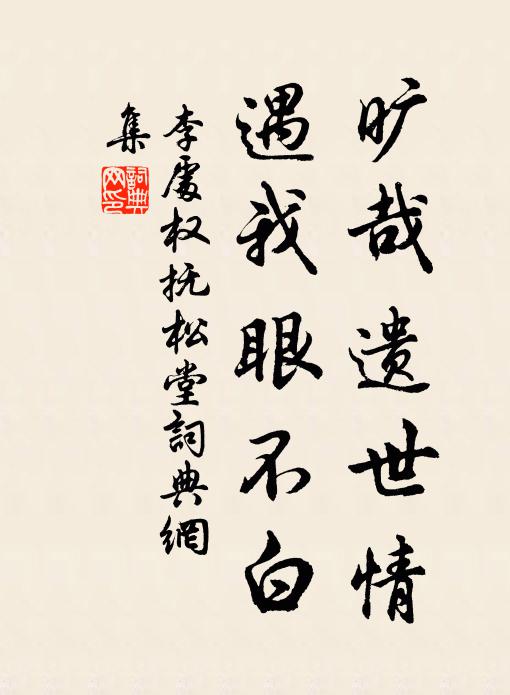 旷哉遗世情
遇我眼不白
李處权抚松堂詞典網
集
詞典网印